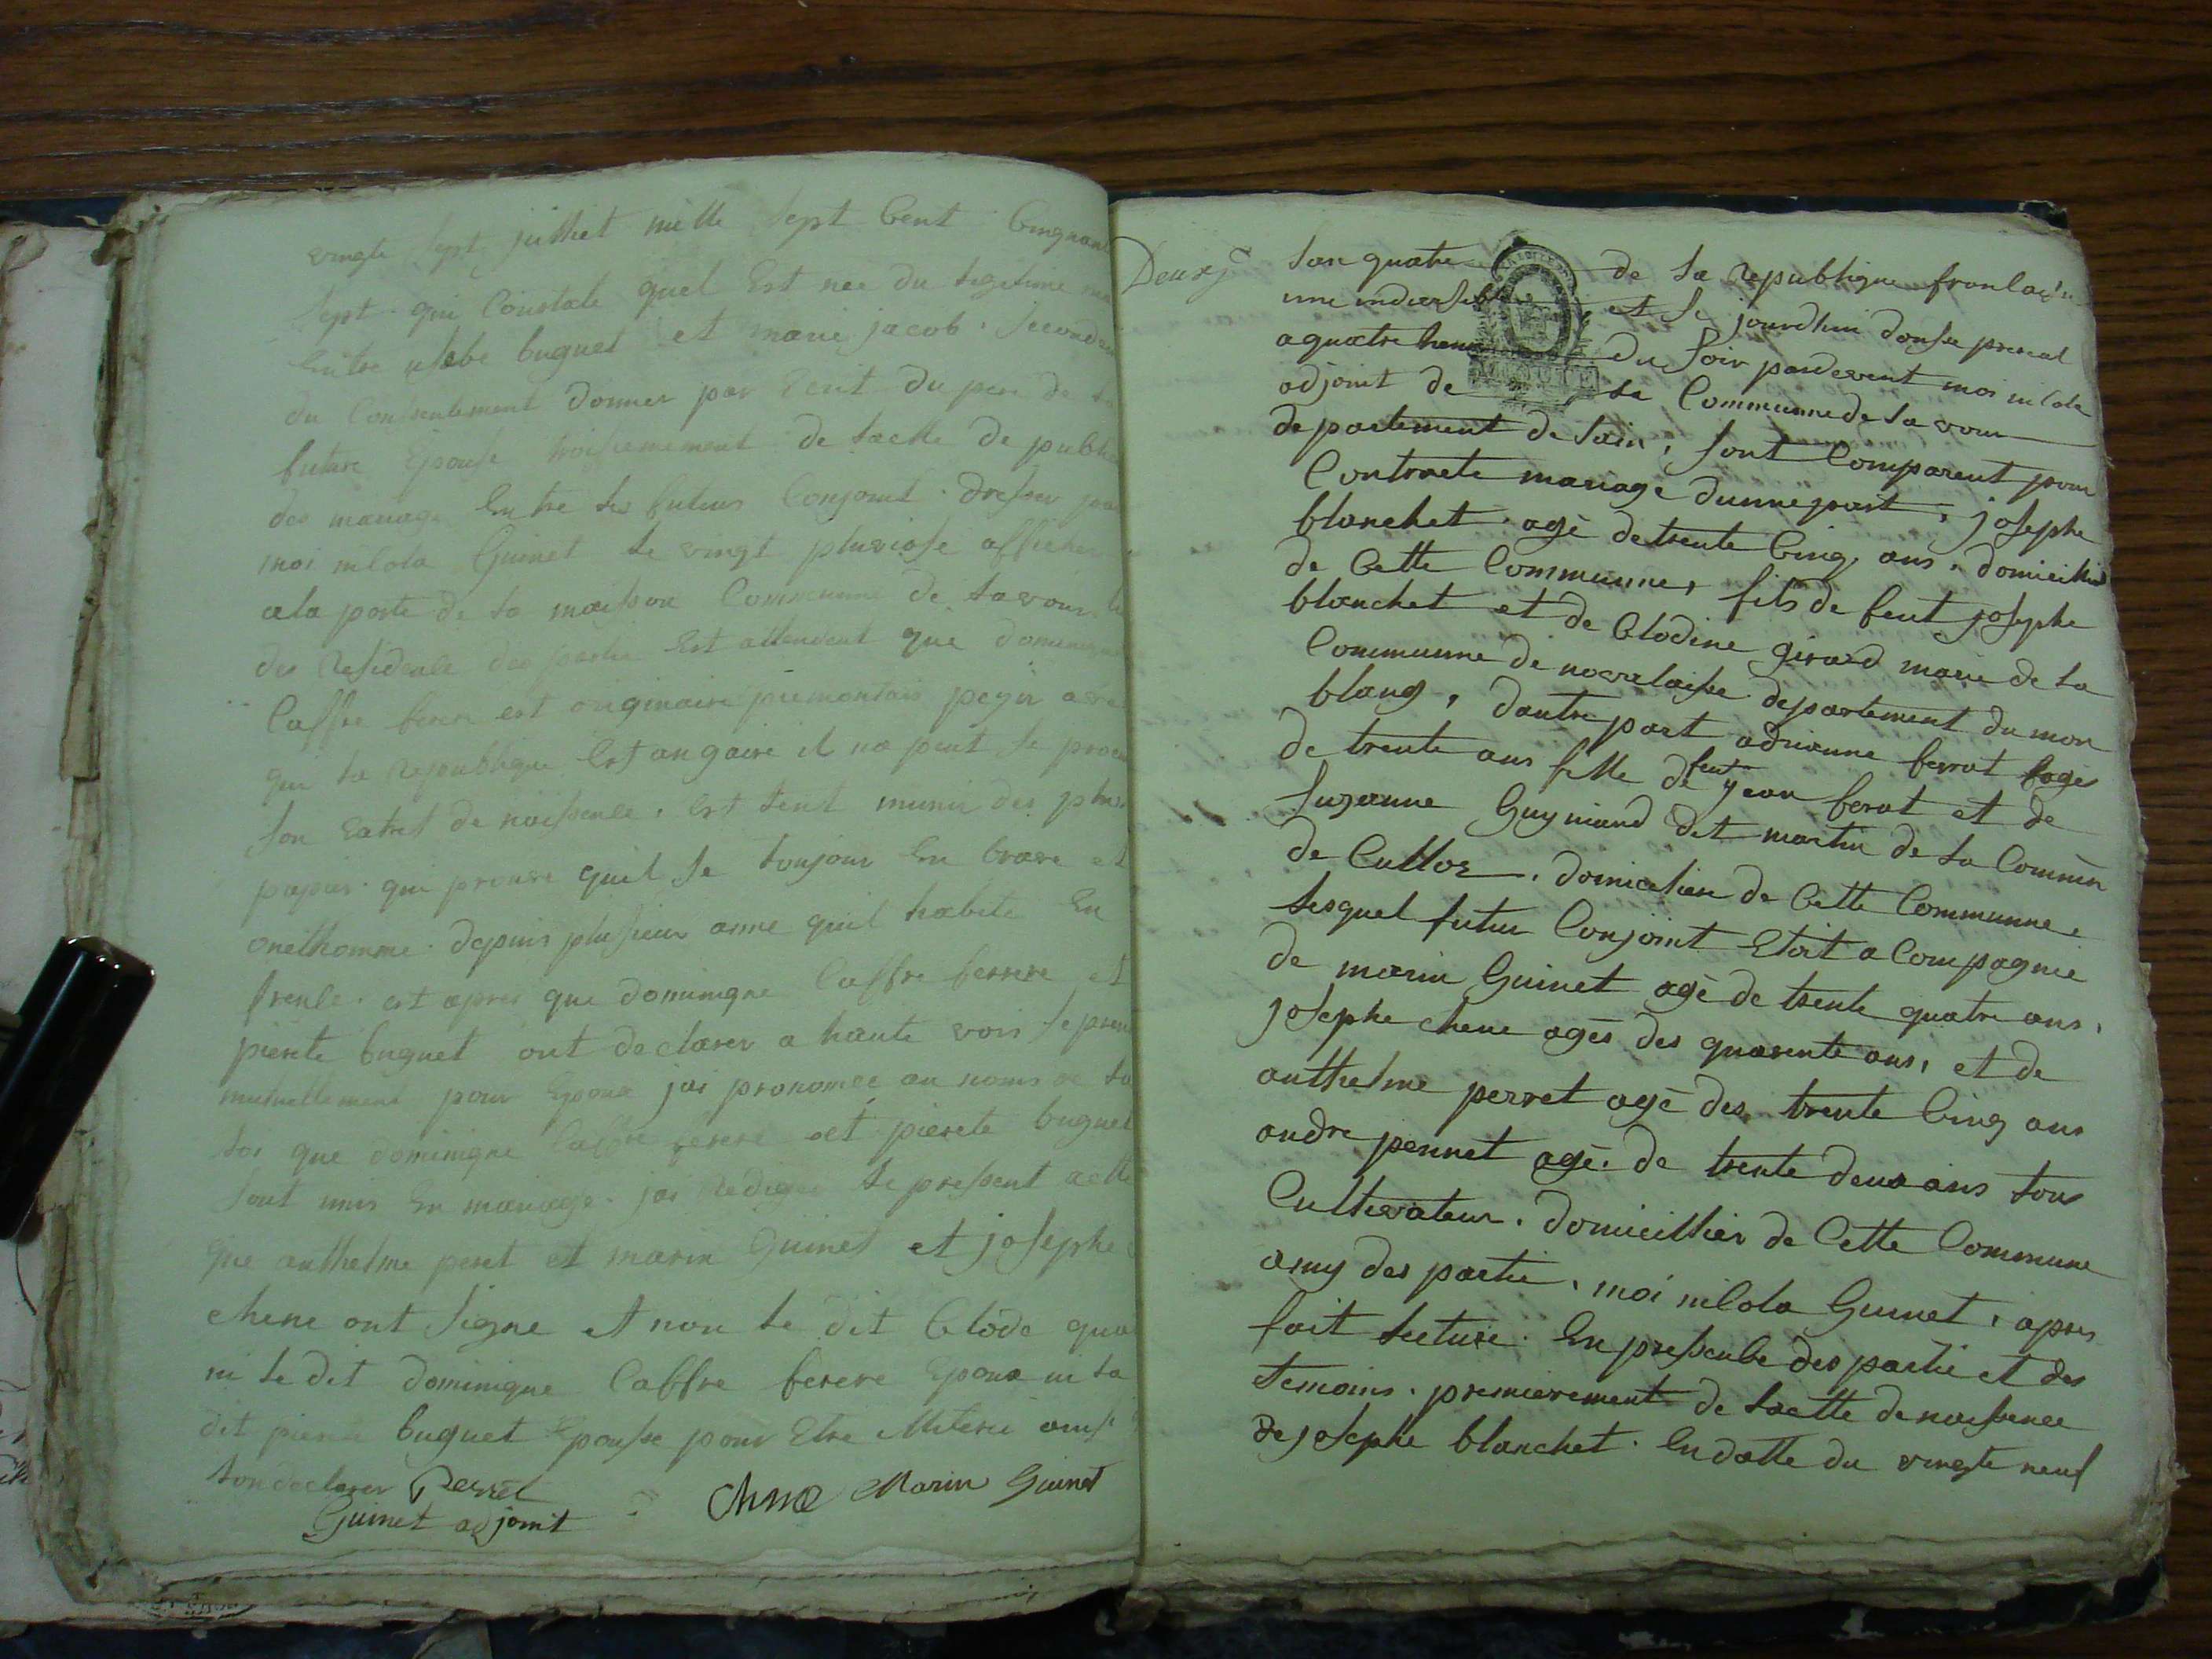 vingte sept juilliet mille sept Cent Cinquan
sept qui Constate quel Est nee du legitime
Entre usebe buguet et marie jacob. Secondem
du Consentement donner par Ecrit du pere de la
future Epouse troisiemement de lactte de public
des mariage Entre les futurs Conjoint. dresser par
moi nicola Guinet le vingt pluviose afficher
ala porte de la maison Commune de lavour
des Residence des partie Est attendent que dominique
Caffre ferere est originaire piemontais peyis avec
qui la Republique Est an gaire il na peut se procu
son Eatret de naissence, Est tent munir des
papier qui prouve quil se toujour En brave et
onethomme depuis plusieur anne quil habite En
frence. est apres que dominique Caffre ferrere et
pierete buguet ont declarer a haute vois se pren
mutuellement pour Epoux jai prononcee au noms de la
loi que dominique Caffre ferere et pierete buguet
sont unis En mariage. jai Rediger le pressent actte
que anthelme peret et marin Guinet et josephe
chene ont signe et non le dit Clode
ni le dit dominique Caffre ferere Epoux ni la
dit buguet Epousse pour Etre
lon declarer Perret
Guinet adjoint Chene Marin Guinet
Deuxe
Lan quatre de la Republique francaise
une indivisible et le jourdhui donse prereal
a quatre heure du soir pardevent moi nicola
adjoint de la Commune de la vour
departement de lain, sont Comparent pour
Contracte mariage dunne part, josephe
blanchet. agè de trente Cinq ans. domicilié
de Cette Communne, fils de feut josephe
blanchet et de Clodine girard marie de la
Communne de novelaisse departement du mon
blang, dautre part adrienne ferrat agés
de trente ans fille de feut jean ferat et de
suzanne Guyniand dit martin de la Commun
de Culloz. domicilier de Cette Communne.
lesquel futur Conjoint Etoit a Compagnie
de marin Guinet agè de trente quatre ans,
josephe chene agès des quarente ans, et de
anthelme perret agè des trente Cinq ans
andre pennet agè. de trente deux ans tous
Cultivateur. domicillier de Cette Commune
amy des partie, moi nicola Guinet, apres
fait lecture. En pressence des partie et des
temoins. premierement de lactte de naissence
de josephe blanchet. En datte du vingte neuf